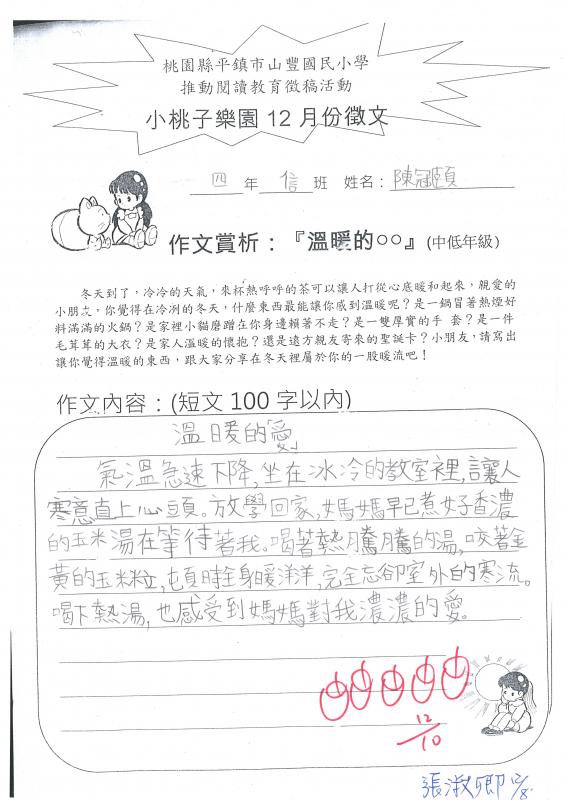 桃園縣平鎮市山豐國民小學
推動閱讀教育徵稿活動
小桃子樂園 12 月份徵文
四 年 信 班 姓名：陳冠頤
作文賞析：『溫暖的○○』(中低年級)
冬天到了，冷冷的天氣，來杯熱呼呼的茶可以讓人打從心底暖和起來，親愛的
小朋友，你覺得在冷冽的冬天，什麼東西最能讓你感到溫暖呢？是一鍋冒著熱煙好
料滿滿的火鍋？是家裡小貓磨蹭在你身邊賴著不走？是一雙厚實的手 套？是一件
毛茸茸的大衣？是家人溫暖的懷抱？還是遠方親友寄來的聖誕卡？小朋友，請寫出
讓你覺得溫暖的東西，跟大家分享在冬天裡屬於你的一股暖流吧！
作文內容：(短文 100 字以內)
溫暖的愛
氣溫急速下降，坐在冰冷的教室裡，讓人
寒意直上心頭。放學回家，媽媽早已煮好香濃
的玉米湯在等待著我。喝著熱騰騰的湯，咬著金
黃的玉米粒，頓時全身暖洋洋，完全忘卻室外的寒流。
喝下熱湯，也感受到媽媽對我濃濃的愛。
12/10
張淑卿 12/8